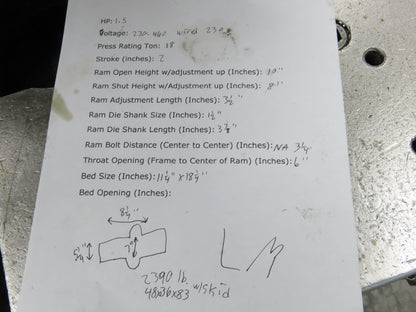 HP: 1.5
Voltage: 230-460 wired 230
Press Rating Ton: 18
Stroke (inches): 2
Ram Open Height w/adjustment up (Inches): 10"
Ram Shut Height w/adjustment up (Inches): 8"
Ram Adjustment Length (Inches): 3½"
Ram Die Shank Size (Inches): 1½"
Ram Die Shank Length (Inches):
Ram Bolt Distance (Center to Center) (Inches): NA 3¼
Throat Opening (Frame to Center of Ram) (Inches): 6"
Bed Size (Inches): 11¼" x 18¼"
Bed Opening (Inches):
8¼"
7"
2390 lb.
48x36x83 w/skid
LM